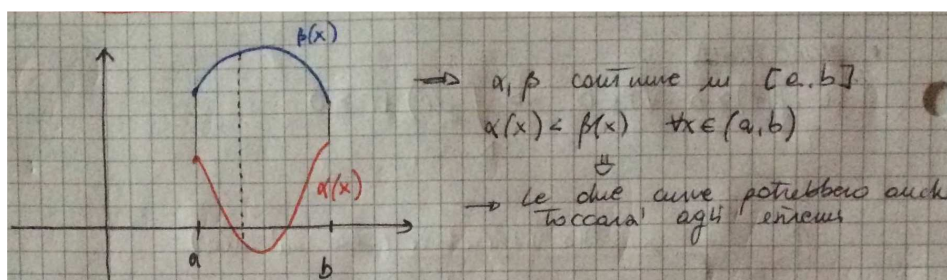 β(x)
→ α, β continue in [a,b]
α(x) < β(x) ∀x∈(a,b)
⇓
α(x)
→ Le due curve potrebbero anch
toccarsi agli estremi
a b